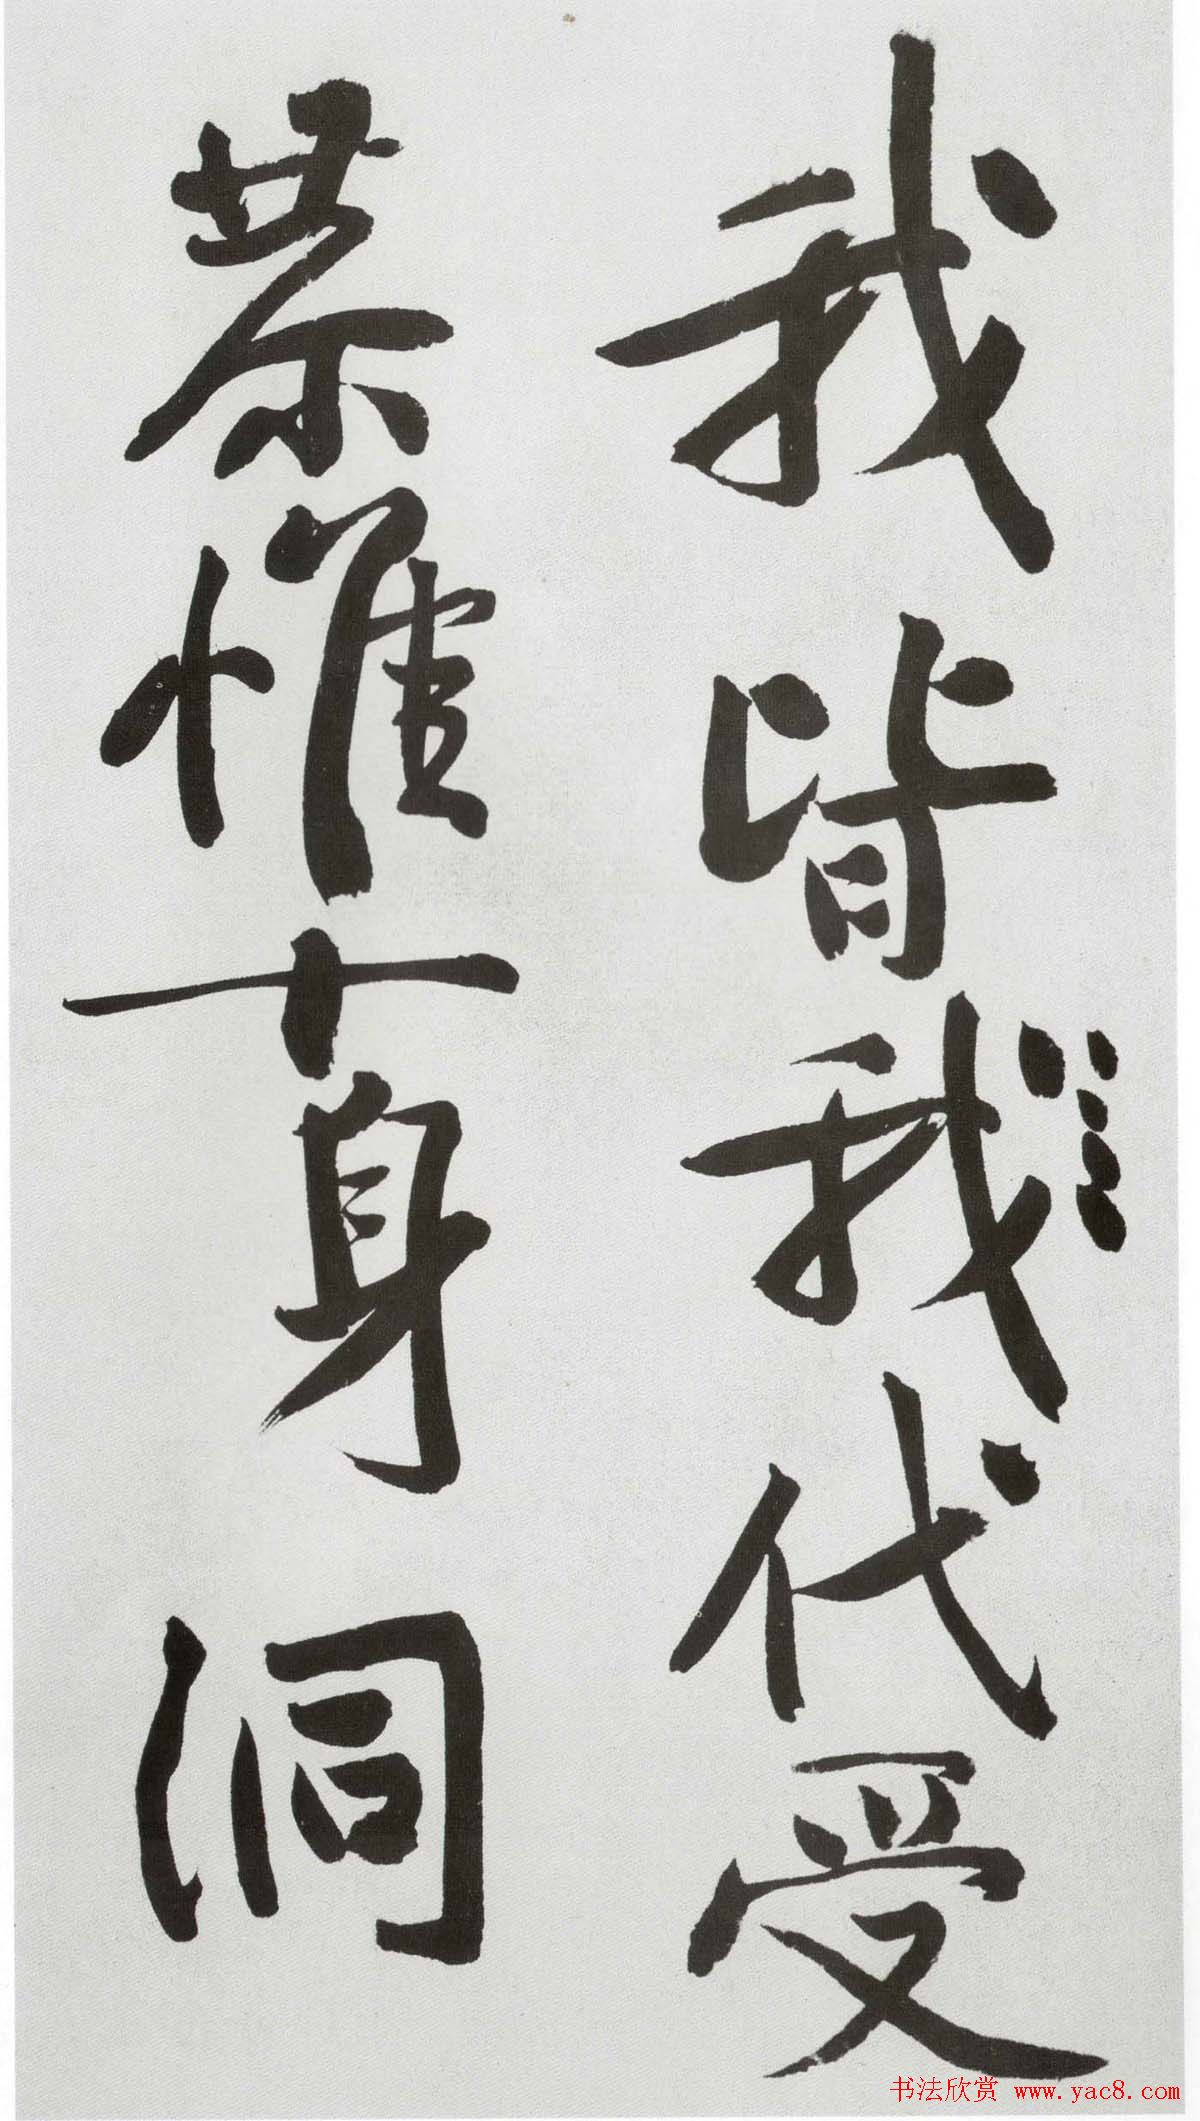 我皆我代受
恭惟十身洞
书法欣赏 www.yac8.com